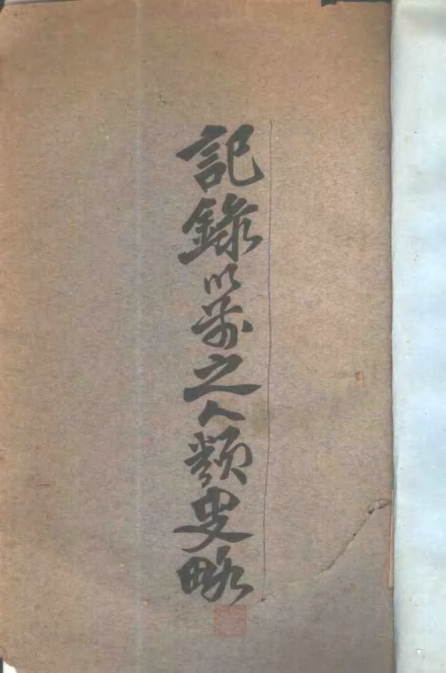 記錄以前之人類史略